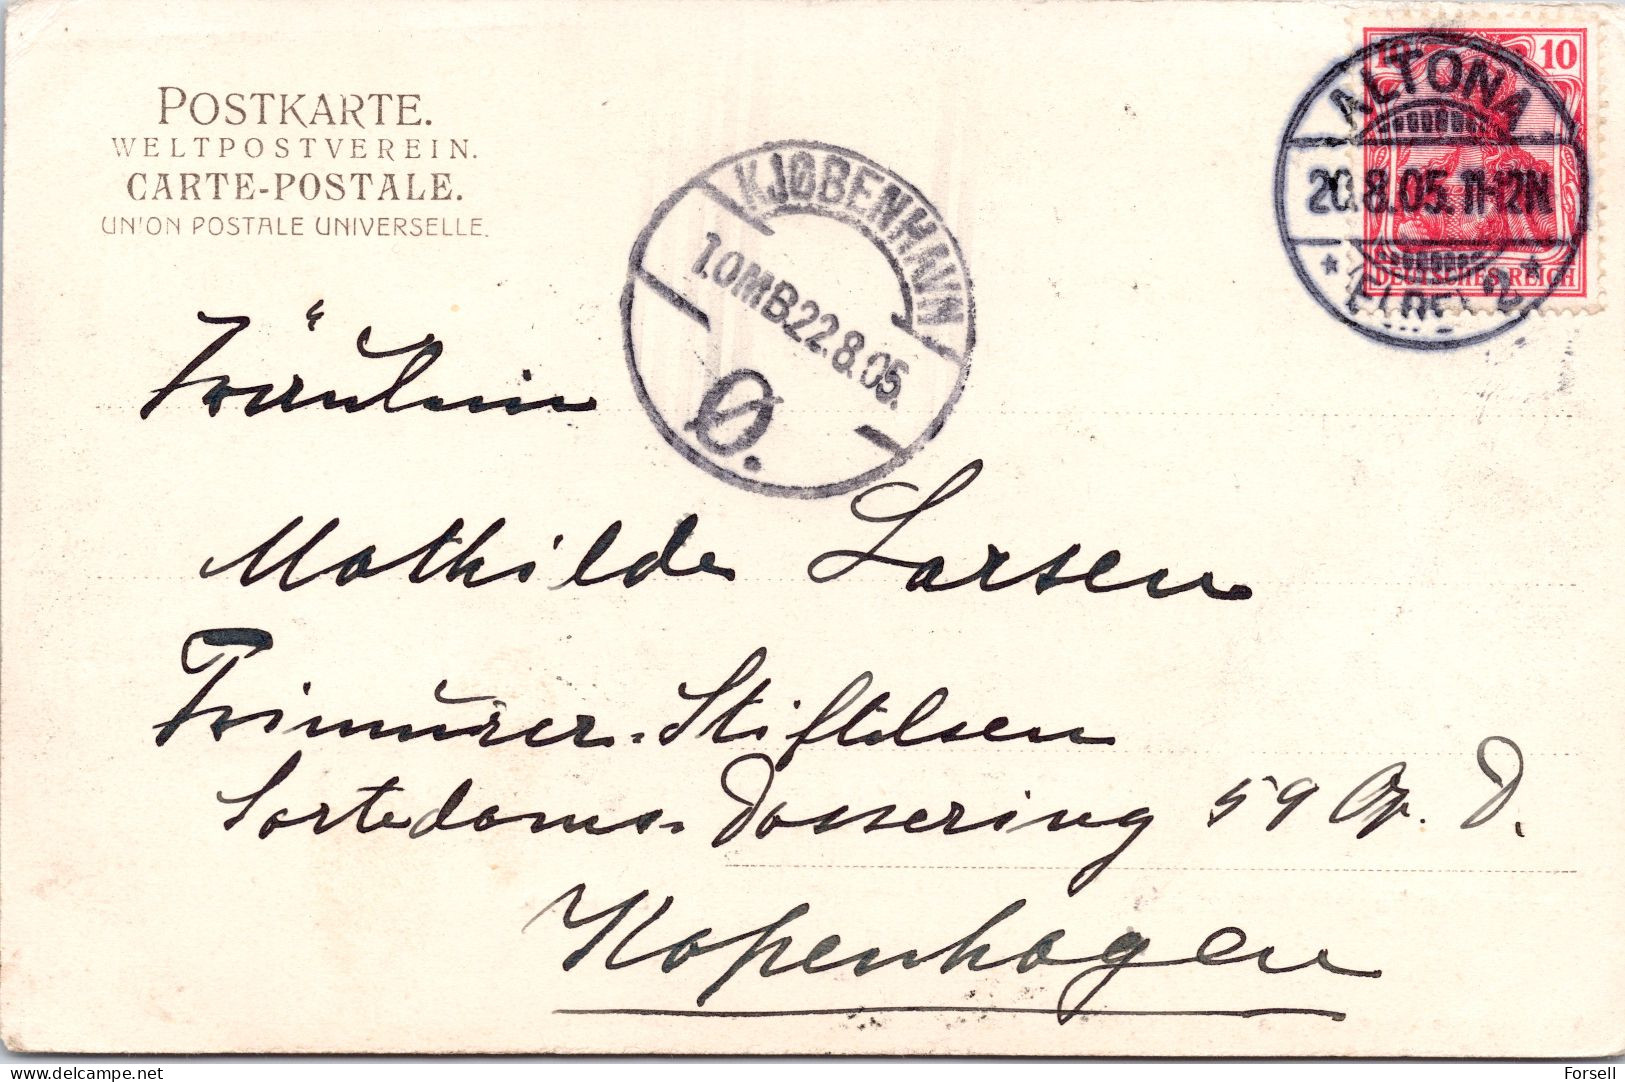 POSTKARTE.
WELTPOSTVEREIN.
CARTE-POSTALE.
UNION POSTALE UNIVERSELLE.
10
DEUTSCHES REICH
ALTONA
20.8.05. 11-12N
* (ELBE) 2 *
KJØBENHAVN
1.OMB.22.8.05.
Ø.
Fräulein
Mathilde Larsen
Frimurer-Stiftelsen
Sortedams-Dossering 59 D.
Kopenhagen
Forsell
delcampe.net